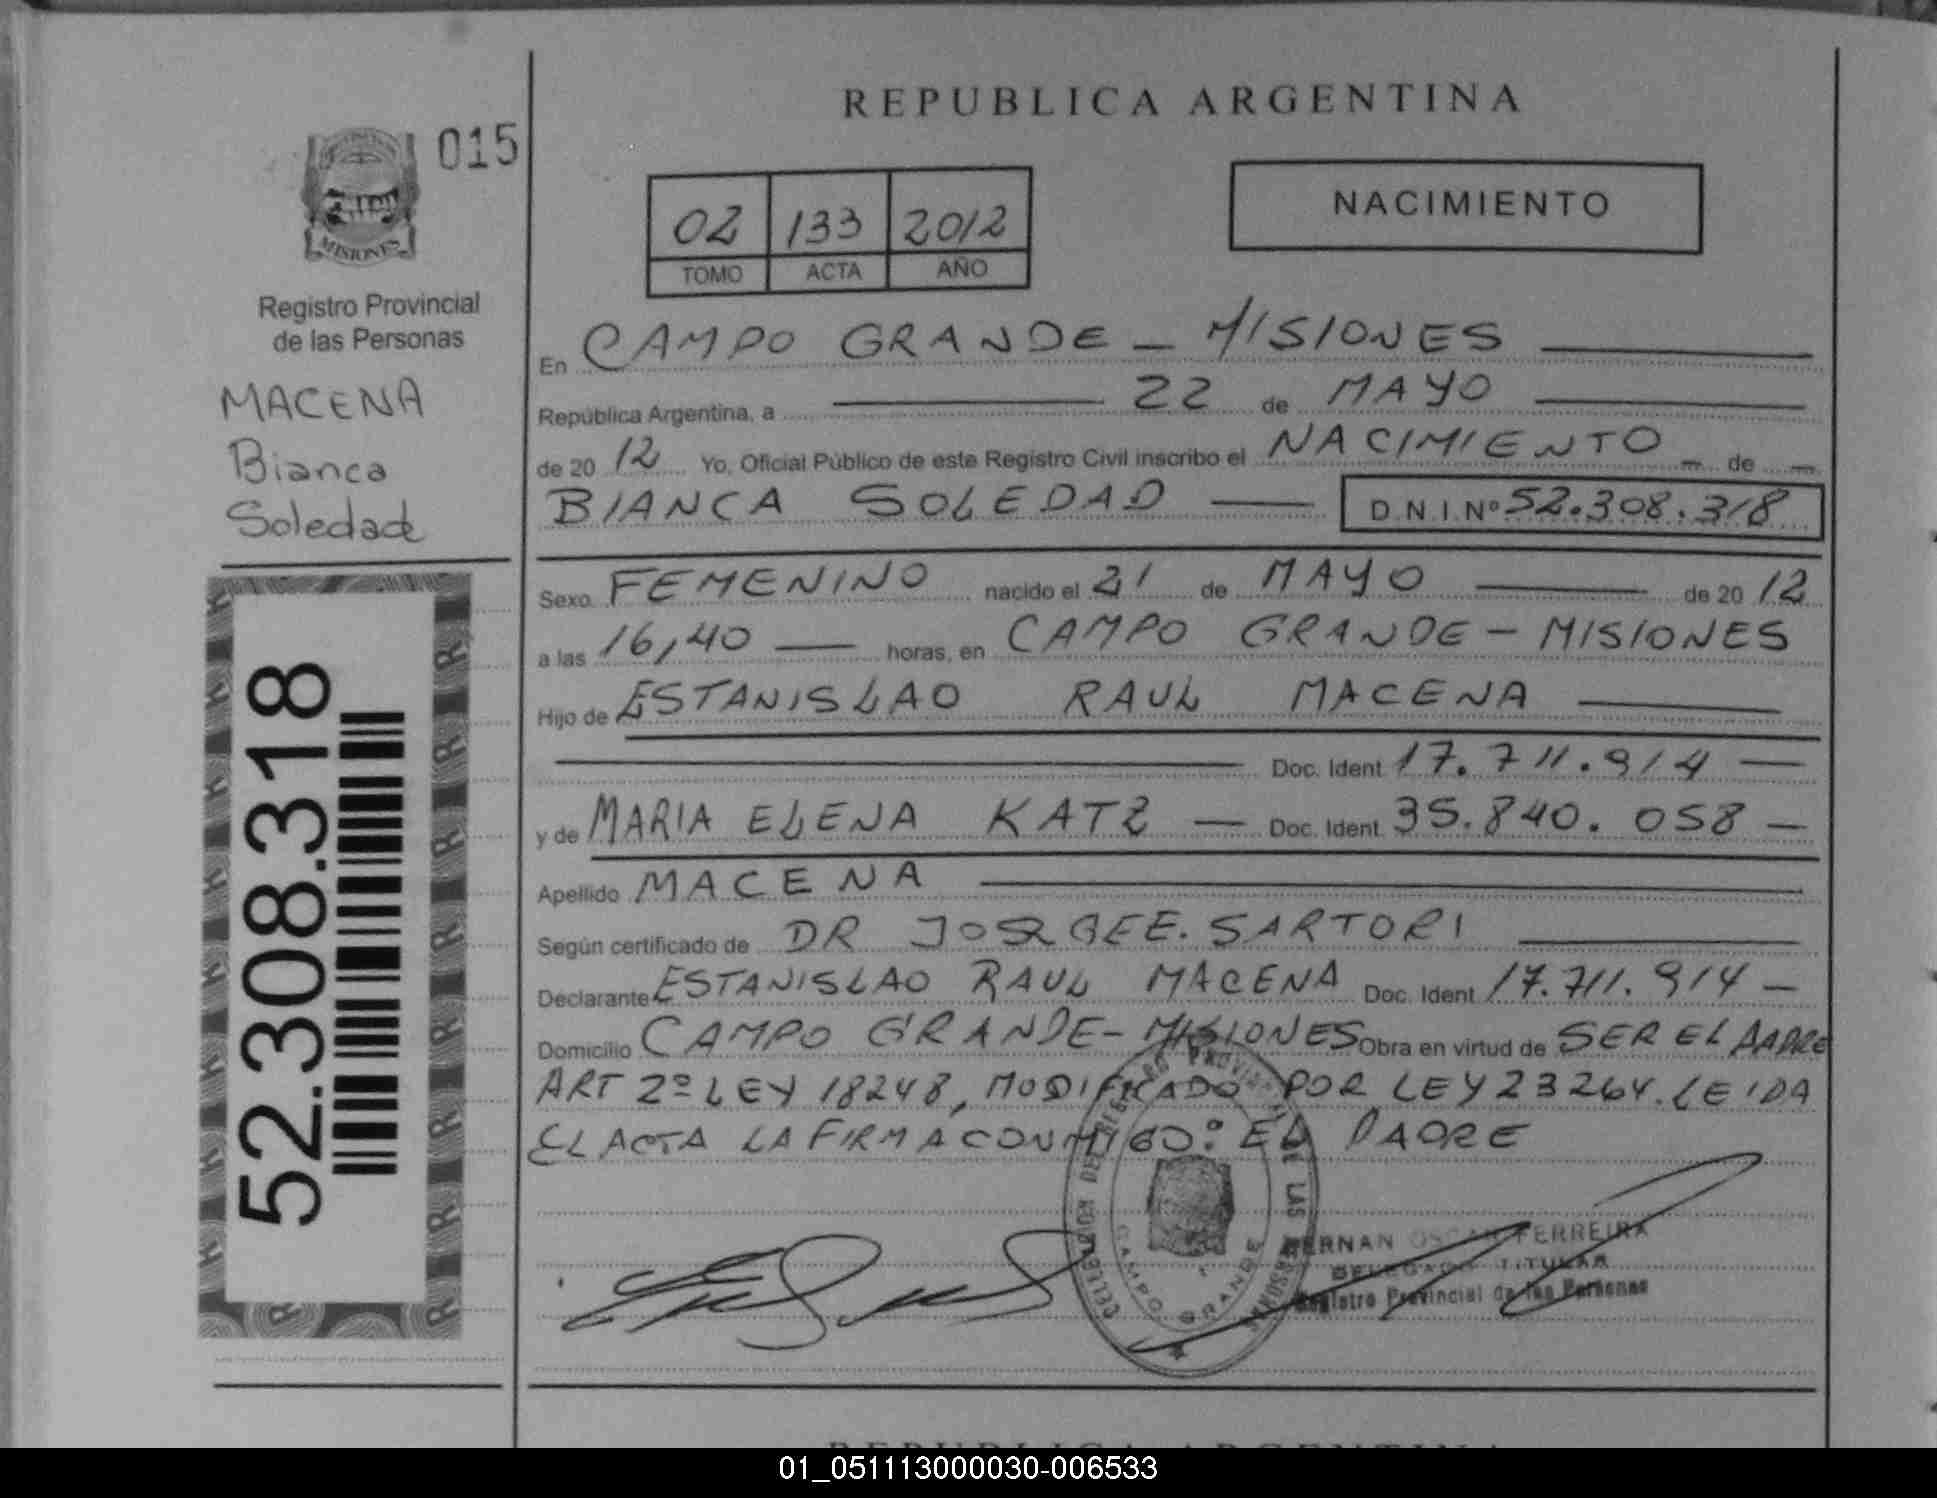 REPUBLICA ARGENTINA
015
MISIONES
Registro Provincial
de las Personas
MACENA
Bianca
Soledad
52.308.318
02 133 2012
TOMO ACTA AÑO
NACIMIENTO
En CAMPO GRANDE - MISIONES
República Argentina, a 22 de MAYO
de 20 12 Yo, Oficial Público de este Registro Civil inscribo el NACIMIENTO de
BIANCA SOLEDAD D.N.I.Nº 52.308.318
Sexo FEMENINO nacido el 21 de MAYO de 20 12
a las 16,40 horas, en CAMPO GRANDE - MISIONES
Hijo de ESTANISLAO RAUL MACENA
Doc. Ident 17.711.914
y de MARIA ELENA KATZ Doc. Ident. 35.840.058
Apellido MACENA
Según certificado de DR JORGE E. SARTORI
Declarante ESTANISLAO RAUL MACENA Doc. Ident 17.711.914
Domicilio CAMPO GRANDE - MISIONES Obra en virtud de SER EL PADRE
ART 2º LEY 18248, MODIFICADO POR LEY 23264. LEIDA
EL ACTA LA FIRMA CONMIGO: EL PADRE
CAMPO GRANDE
HERNAN OSCAR FERREIRA
DELEGADO TITULAR
Registro Provincial de las Personas
REPUBLICA ARGENTINA
01_051113000030-006533